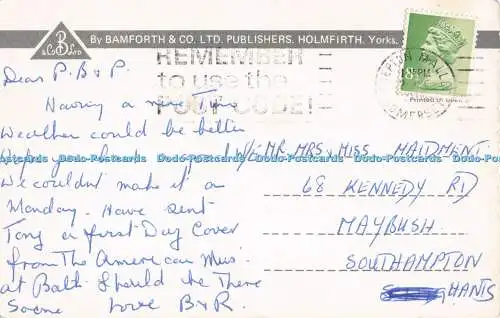 By BAMFORTH & CO. LTD. PUBLISHERS, HOLMFIRTH, Yorks.
B
& Co LTD
REMEMBER
to use the
POST CODE!
Printed in
Dear P. B & P.
Having a nice Time
Weather could be better
Hope you
We couldnt make it a
Monday. Have sent
Tony a first Day Cover
from The American Mus.
at Bath Should be There
Soone Love B & R.
MR. MRS & MISS. MAIDMENT
68 KENNEDY RD
MAYBUSH.
SOUTHAMPTON
HANTS
Dodo-Postcards Dodo-Postcards Dodo-Postcards Dodo-Postcards Dodo-Postcards